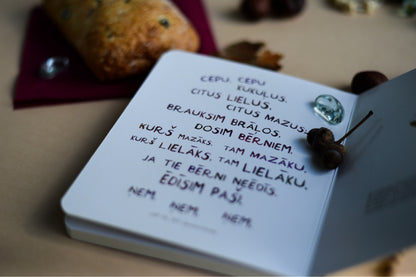 CEPU, CEPU
KUKUĻUS.
CITUS LIELUS,
CITUS MAZUS.
BRAUKSIM BRĀĻOS,
DOSIM BĒRNIEM.
KURŠ MAZĀKS, TAM MAZĀKU,
KURŠ LIELĀKS, TAM LIELĀKU.
JA TIE BĒRNI NEĒDĪS,
ĒDĪSIM PAŠI.
ŅEM, ŅEM, ŅEM.